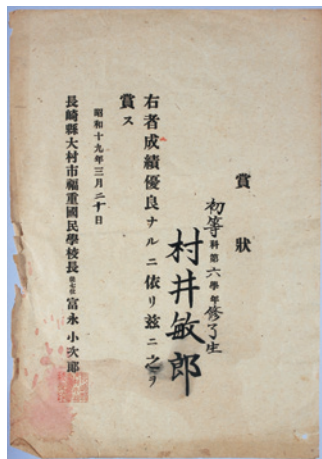 賞狀
初等科第六學年修了生
村井敏郎
右者成績優良ナルニ依リ玆ニ之ヲ
賞ス
昭和十九年三月二十日
長崎縣大村市福重國民學校長 富永小次郎